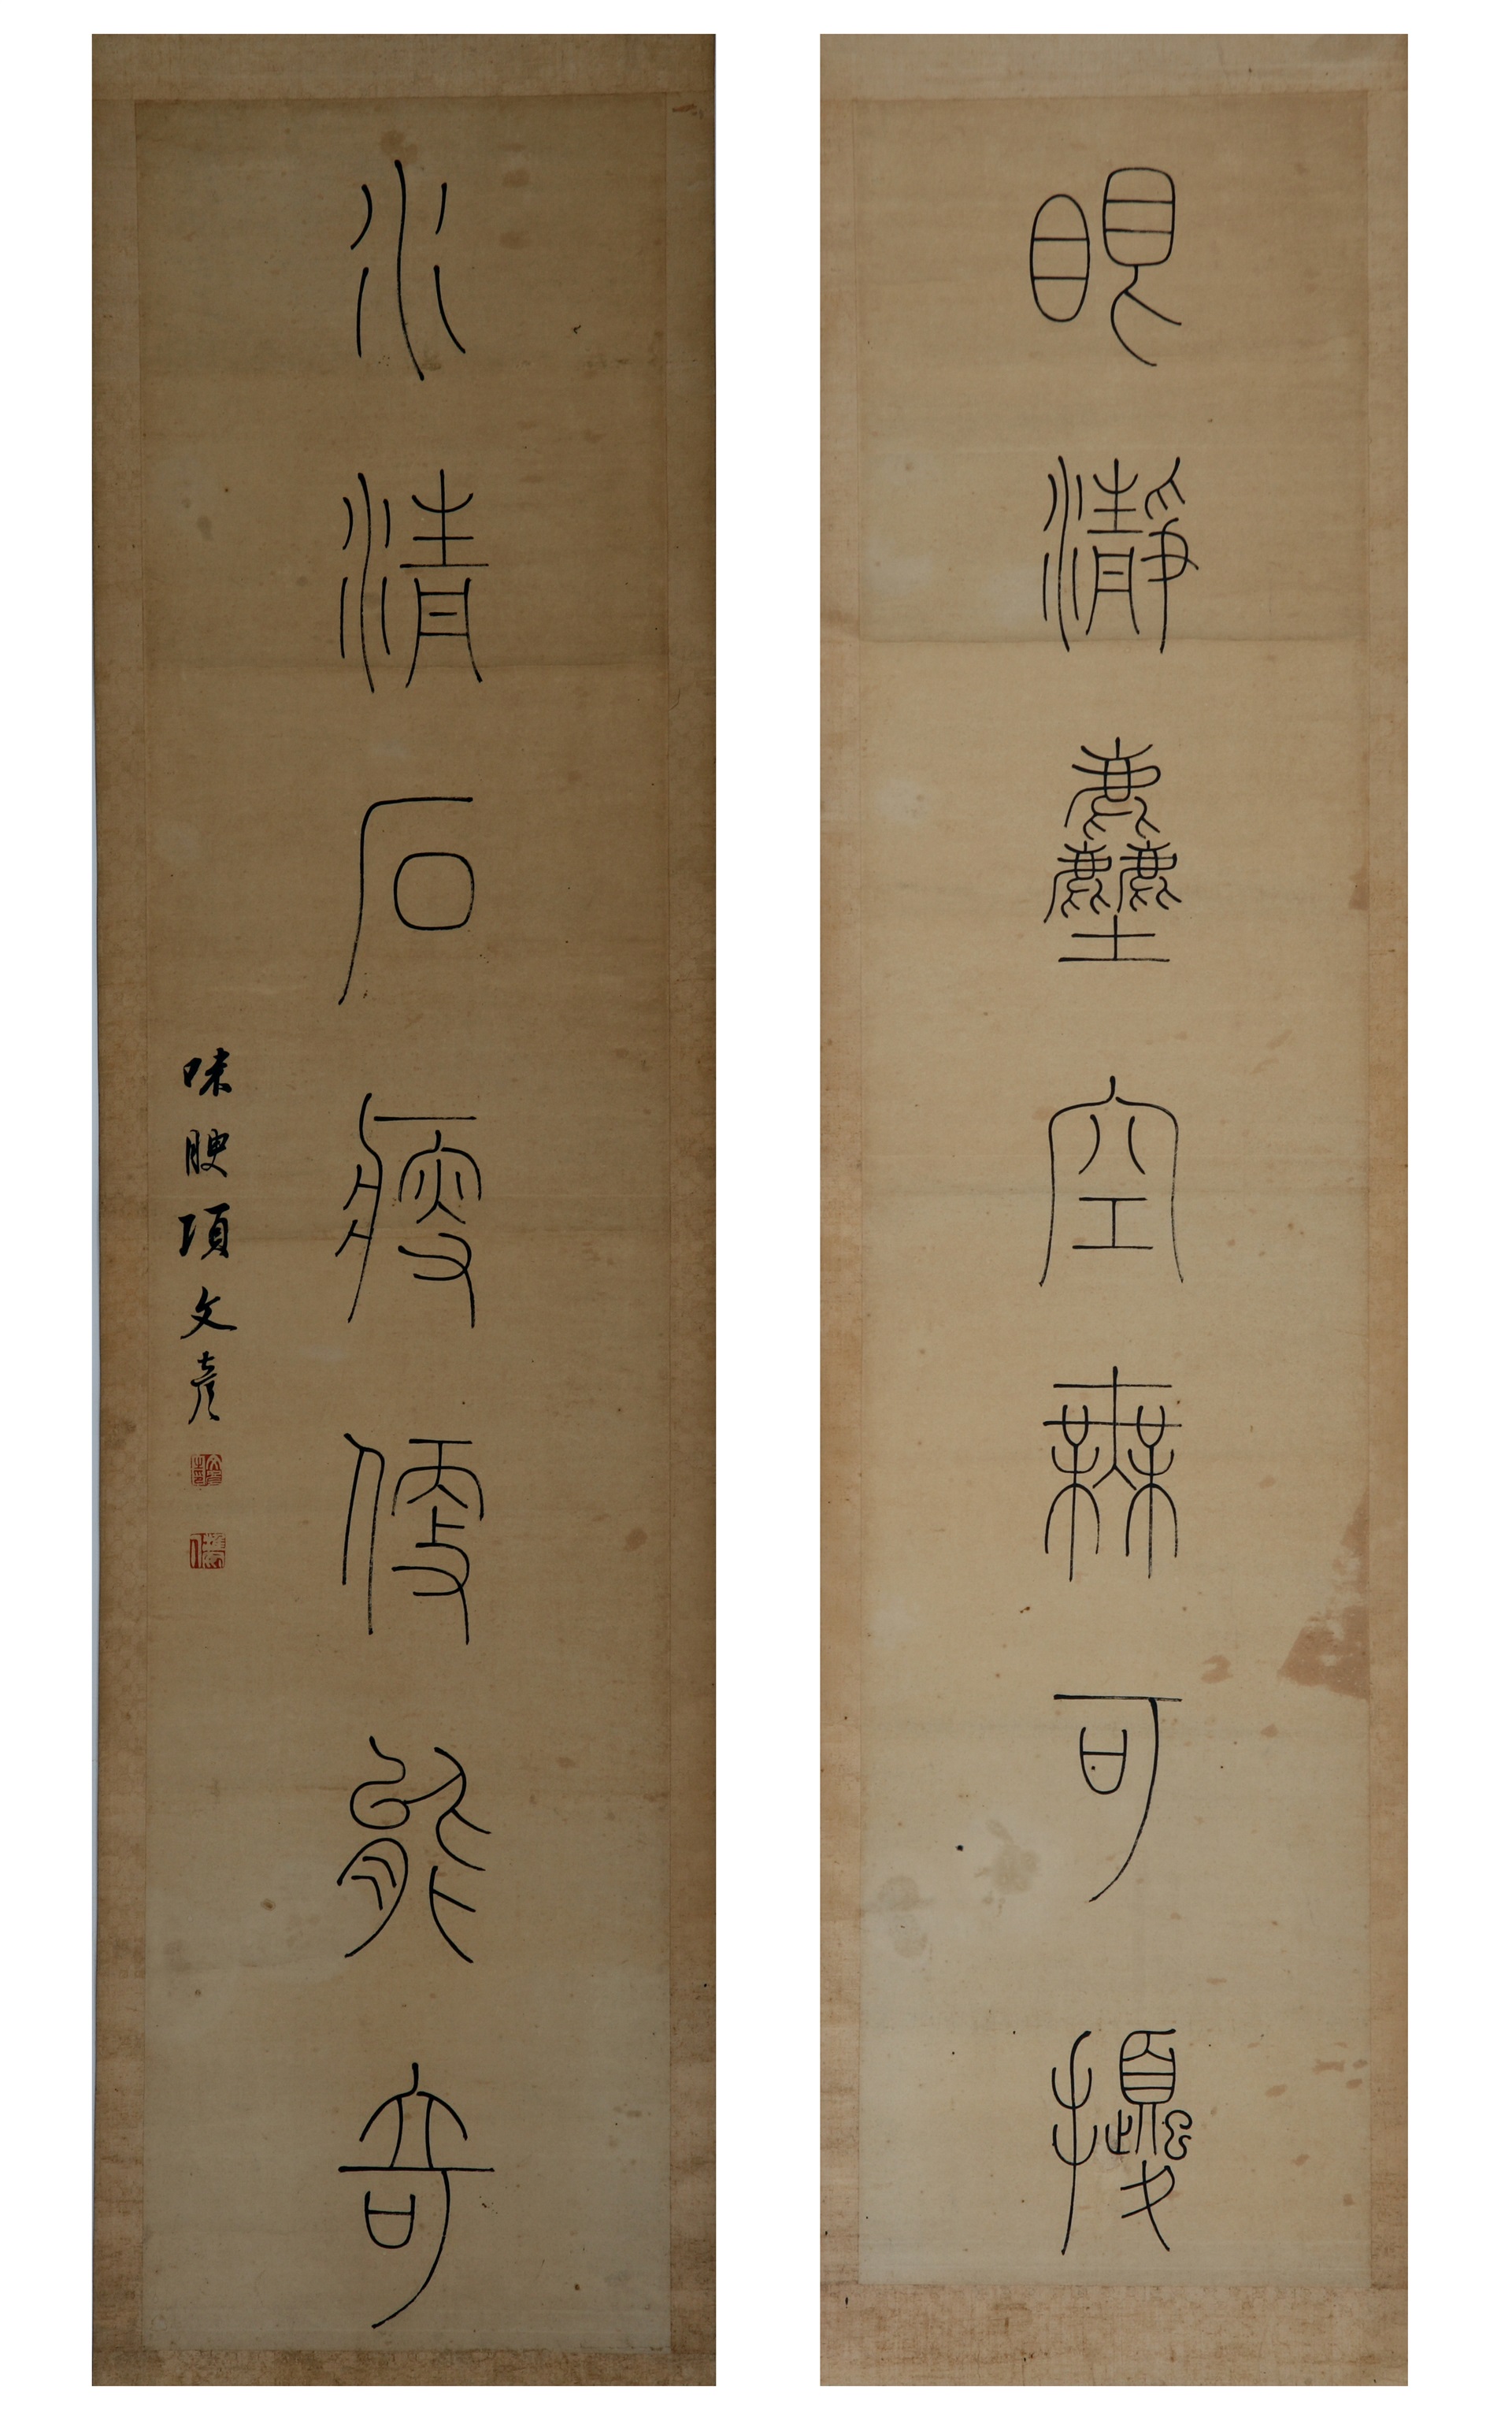 眼瀞塵空無可擾
水清石瘦便能奇
味腴項文彥